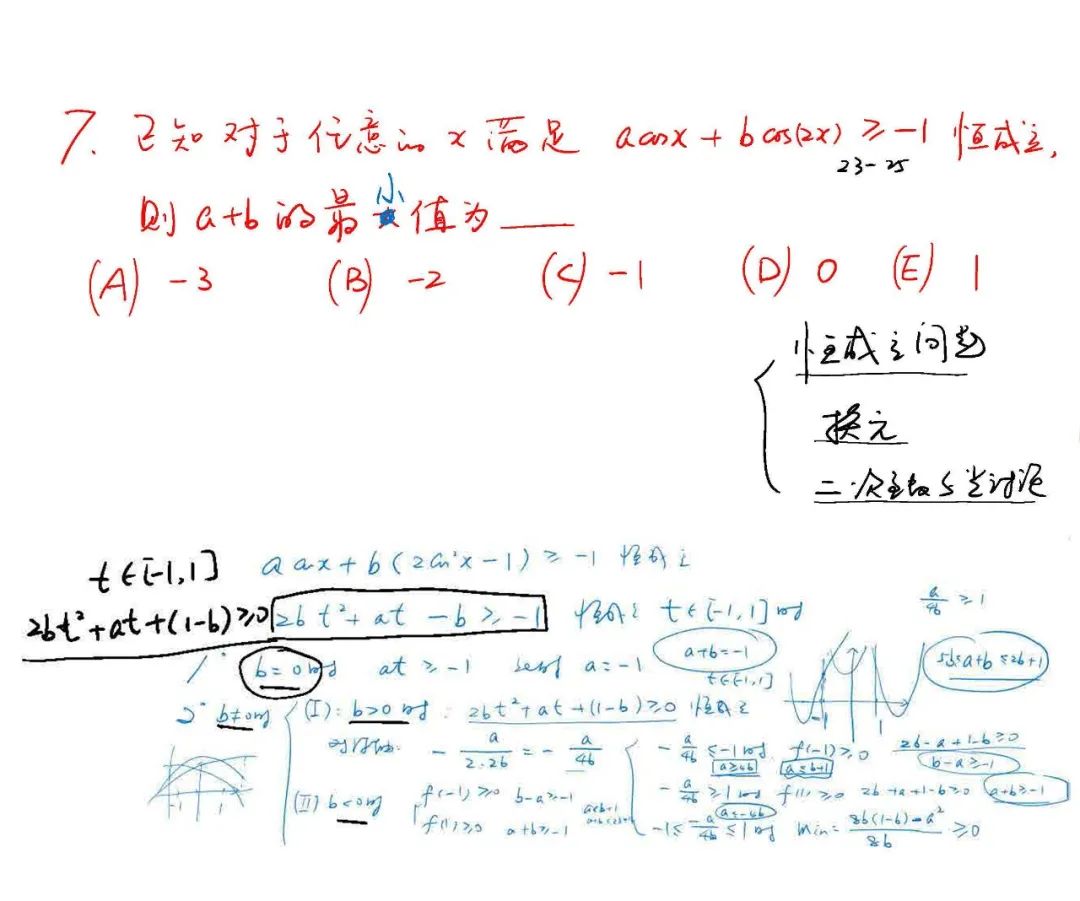 7. 已知对于任意的 x 满足 acosx + bcos(2x) ≥ -1 恒成立,
23-25
则 a+b 的最小值为____
(A) -3 (B) -2 (C) -1 (D) 0 (E) 1
恒成立问题
换元
二次函数分类讨论
t∈[-1,1] a cosx + b(2cos²x-1) ≥ -1 恒成立
2bt²+at+(1-b)≥0 2bt²+at-b≥-1 恒成立 t∈[-1,1]时
1° b=0时 at≥-1 a=-1 a+b=-1
t∈[-1,1]
5b≤a+b≤2b+1
2° b≠0时 (I): b>0时 2bt²+at+(1-b)≥0 恒成立
-1 1
对称轴: -a/(2·2b) = -a/4b
-a/4b≤-1时 f(-1)≥0 2b-a+1-b≥0
a≥4b a≤b+1 b-a≥-1
-a/4b≥1时 f(1)≥0 2b+a+1-b≥0 a+b≥-1
a≤-4b
-1≤-a/4b≤1时 min=(8b(1-b)-a²)/8b ≥0
(II) b<0时 f(-1)≥0 b-a≥-1
f(1)≥0 a+b≥-1
a≤b+1
-1 1